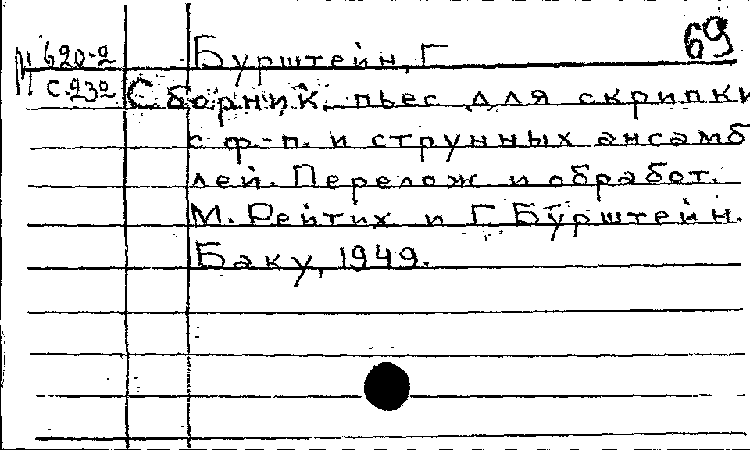 69
М 620-2
С.232
Бурштейн, Г
Сборник пьес для скрипки
с ф.-п. и струнных ансамб
лей. Перелож и обработ.
М. Рейтих и Г. Бурштейн.
Баку, 1949.